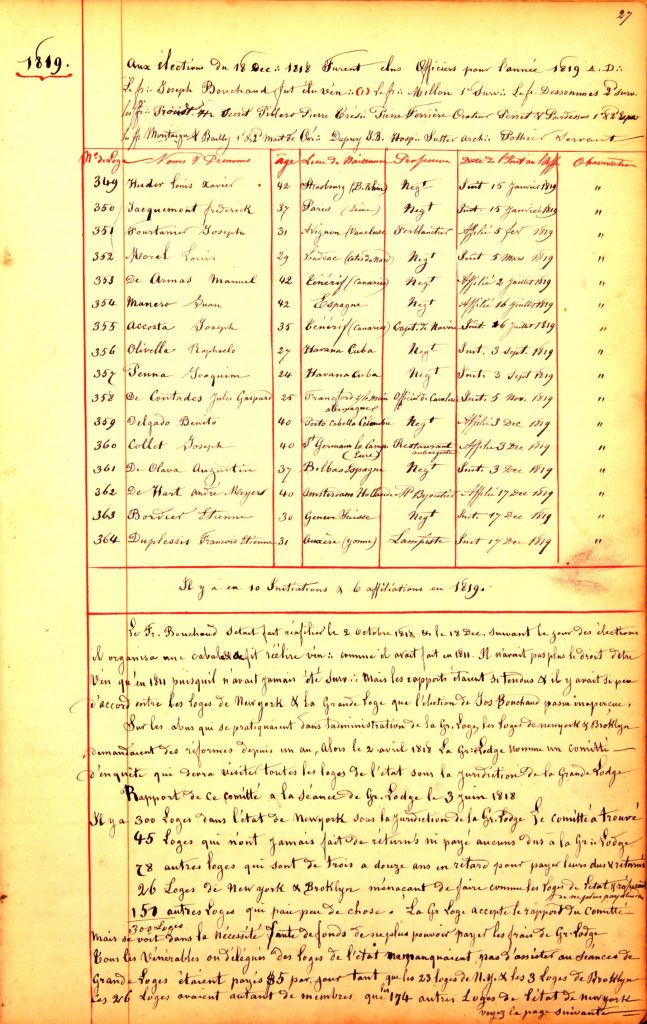 27
1819.
Aux élections du 18 Dec∴ 1818 Furent elus Officiers pour l'année 1819 A. D∴
Le fr∴ Joseph Bouchaud fut élu ven∴ (1) le fr∴ Mellon 1er Surv∴ Le fr. Dessommes 2e Surv.
Secret Pierre Orateur Perret & Pardessus 1er & 2e Exp
Montaigu & Bailly 1er & 2e Mait de Cér∴ Dupuy J.B. Hospr Sutter Archi∴ Pothier Servant
No de Loge Noms & Prenoms âge Lieu de Naissance Profession Date de l'Init ou Aff Observation
349 Huder Louis Xavier 42 Strasbourg (B. Rhin) Negt Init 15 Janvier 1819 "
350 Jacquemont Frederick 37 Paris (Seine) Negt Init. 15 Janvier 1819 "
351 Fourtanier Joseph 31 Avignon (Vaucluse Ferblantier Affilié 5 fev 1819 "
352 Morel Louis 29 (Cotes du Nord) Negt Init 5 Mars 1819 "
353 De Armas Manuel 42 Ténérif (Canaries) Negt Affilié 2 Juillet 1819 "
354 Manero Juan 42 Espagne Negt Affilié 16 Juillet 1819 "
355 Accosta Joseph 35 Ténérif (Canaries) Capt. de Navire Init 16 Juillet 1819 "
356 Olivella Raphaelo 27 Havana Cuba Negt Init. 3 Sept. 1819 "
357 Penna Joaquim 24 Havana Cuba Negt Init. 3 Sept 1819 "
358 De Contades Jules Gaspard 25 Francford s/ le mein allemagne Officier de Cavalerie Init. 5 Nov. 1819 "
359 Delgado Benito 40 Porto Cabello Colombie Negt Affilié 3 Dec 1819 "
360 Collet Joseph 40 St Germain la Camp. (Eure) Restaurant aubergiste Affilié 3 Dec 1819 "
361 De Olava Augustin 37 Bilbao Espagne Negt Init. 3 Dec 1819 "
362 De Hart André Meyers 40 Amsterdam Hollande Md Bijoutier Affilié 17 Dec 1819 "
363 Bordier Etienne 30 Geneve Suisse Negt Init. 17 Dec 1819 "
364 Duplessis Francois Etienne 31 Auxère (Yonne) Lampiste Init 17 Dec 1819 "
Il y a eu 10 Initiations & 6 affiliations en 1819.
Le Fr. Bouchaud s'etait fait réafilier le 2 Octobre 1818 & le 18 Dec. suivant le jour des élections
il organisa une cabale & se fit réélire ven∴ comme il avait fait en 1811. Il n'avait pas plus le droit d'etre
Ven qu'en 1811 puisqu'il n'avait jamais été Surv∴ Mais les rapports étaient si tendus & il y avait si peu
d'accord entre les Loges de New york & la Grande Loge que l'élection de Jos Bouchaud passa inaperçue.
Sur les abus qui se pratiquaient dans l'administration de la Gr. Loge, les Loges de new york & Broklyn
demandaient des réformes depuis un an, Alors le 2 avril 1818 La Gr. Lodge nomme un comitté
d'enquête qui devra visiter toutes les loges de l'état sous la juridiction de la Grande Lodge
Rapport de ce Comitté a la séance de Gr. Lodge le 3 juin 1818
Il y a 300 Loges dans l'état de New york sous la Juridiction de la Gr. Lodge Le comitté a trouvé
45 Loges qui n'ont jamais fait de returns ni payé aucuns dus à la Gr∴ Lodge
78 autres loges qui sont de trois a douze ans en retard pour payer leurs dus & returns
26 Loges de New york & Broklyn menacant de faire comme les loges de l'état & refusant de ne plus payer
151 autres Loges qui paie peu de chose. La Gr Loge accepte le rapport du Comitté
300 Loges
Mais se voit dans la nécéssité faute de fonds de ne plus pouvoir payer les frais de Gr. Lodge
Tous les Vénérables ou délégues des loges de l'état ne manquaient pas d'assister au séances de
Grande Loges étaient payés $5 par jour tant que les 23 loges de N.Y. & les 3 Loges de Broklyn
Ces 26 Loges avaient autant de membres que les 174 autres Loges de l'état de new york
voyez la page suivante